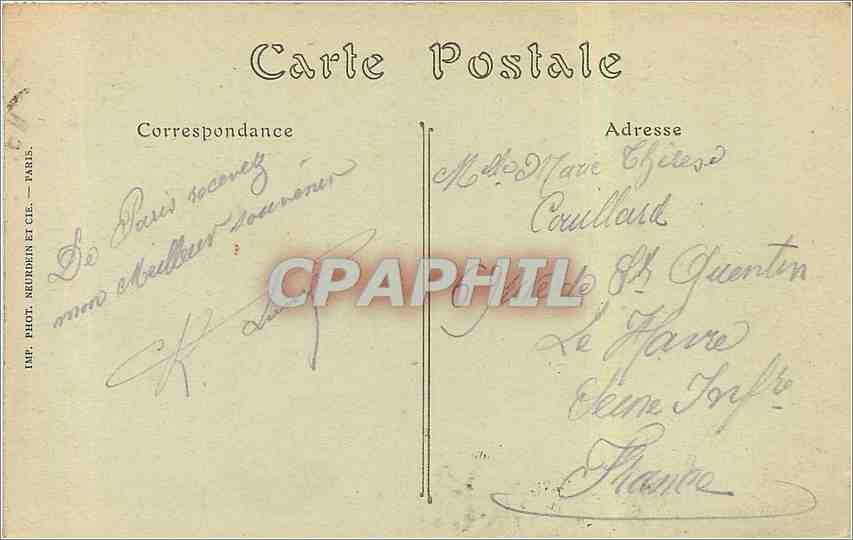 Carte Postale
Correspondance
De Paris recevez
mon Meilleur souvenir
K.
IMP. PHOT. NEURDEIN ET CIE. — PARIS.
CPAPHIL
Adresse
Melle Marie Thérèse
Couillard
St Quentin
Le Havre
Seine Infre
France